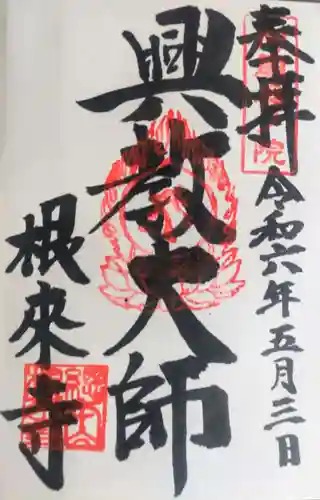 奉拝
令和六年五月三日
興教大師
根來寺